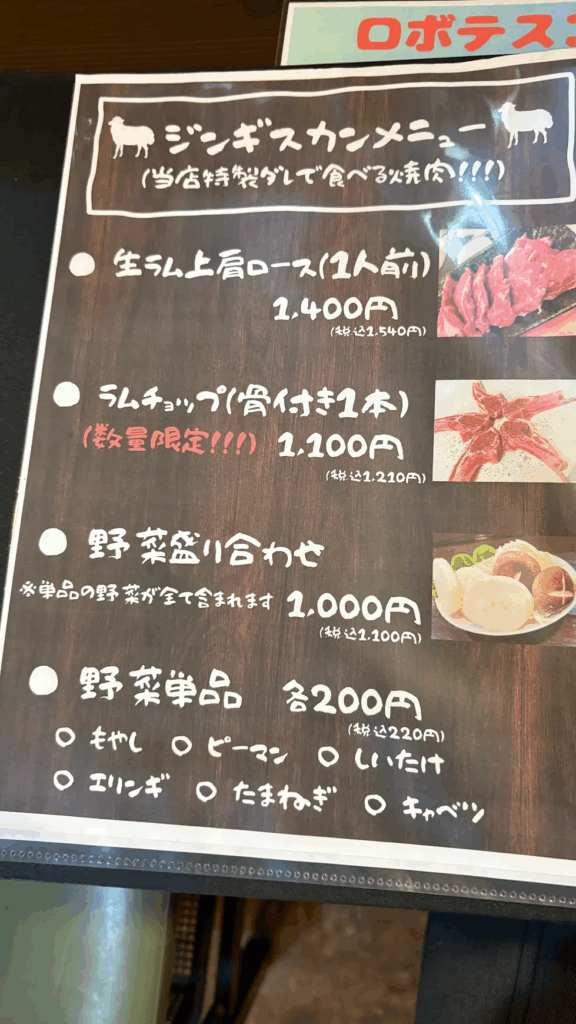 ロボテスコ
ジンギスカンメニュー
(当店特製ダレで食べる焼肉!!!)
● 生ラム上肩ロース(1人前)
1,400円
(税込1,540円)
● ラムチョップ(骨付き1本)
(数量限定!!!) 1,100円
(税込1,210円)
● 野菜盛り合わせ
※単品の野菜が全て含まれます 1,000円
(税込1,100円)
● 野菜単品 各200円
(税込220円)
○ もやし ○ ピーマン ○ しいたけ
○ エリンギ ○ たまねぎ ○ キャベツ